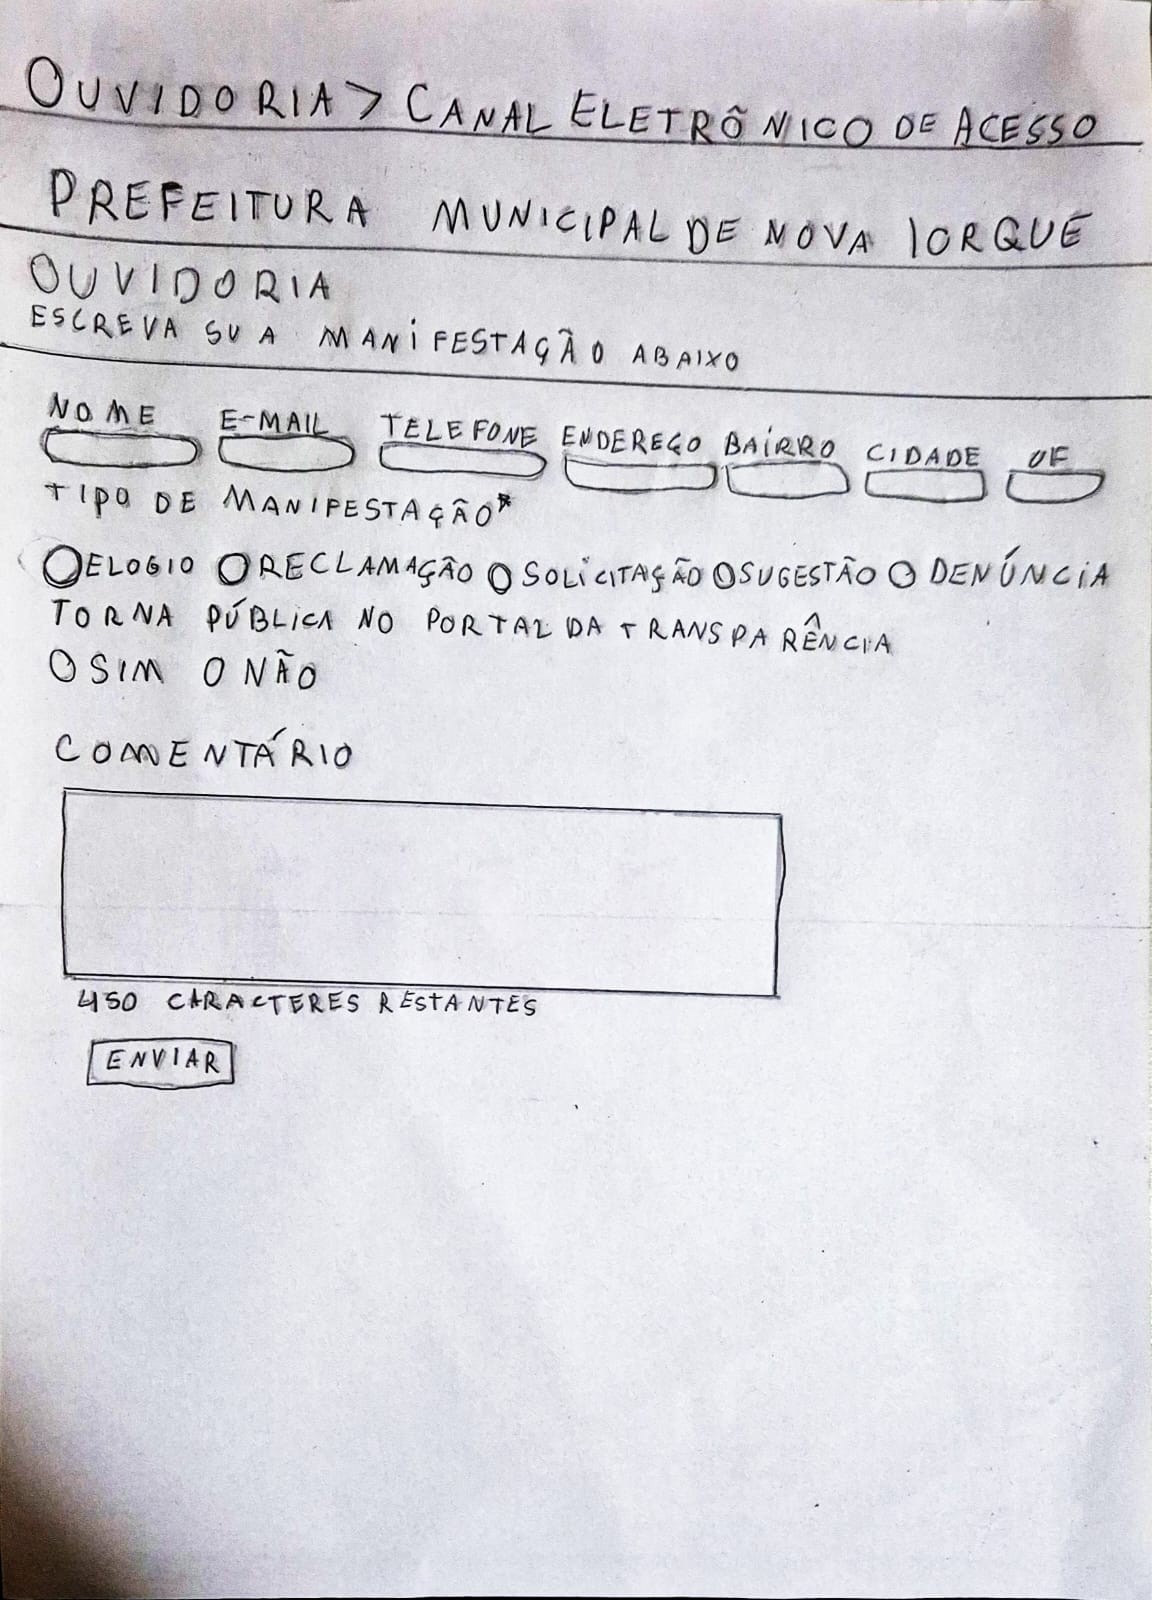 OUVIDORIA > CANAL ELETRÔNICO DE ACESSO
PREFEITURA MUNICIPAL DE NOVA IORQUE
OUVIDORIA
ESCREVA SUA MANIFESTAÇÃO ABAIXO
NOME E-MAIL TELEFONE ENDEREÇO BAÍRRO CIDADE UF
TIPO DE MANIFESTAÇÃO*
ELOGIO RECLAMAÇÃO SOLICITAÇÃO SUGESTÃO DENÚNCIA
TORNA PÚBLICA NO PORTAL DA TRANSPARÊNCIA
SIM NÃO
COMENTÁRIO
450 CARACTERES RESTANTES
ENVIAR